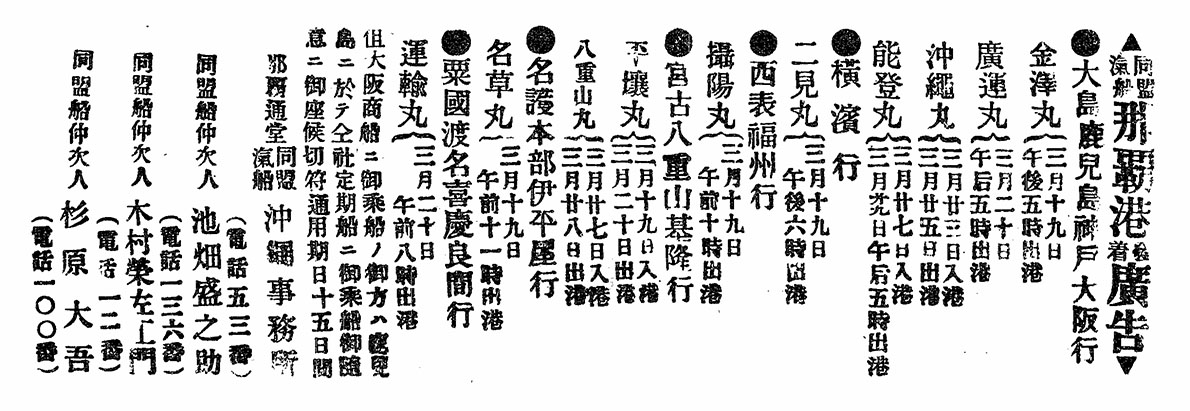 ▲同盟汽船那覇港発着廣告▼
●大島鹿兒島神戸大阪行
金澤丸{三月十九日午後五時出港
廣運丸{三月二十日午后五時出港
沖繩丸{三月廿三日入港三月廿五日出港
能登丸{三月廿七日入港三月廿九日午后五時出港
●横濱行
二見丸{三月十九日午後六時出港
●西表福州行
攝陽丸{三月十九日午前十時出港
●宮古八重山基隆行
平壤丸{三月十九日入港三月二十日出港
八重山丸{三月廿七日入港三月廿八日出港
●名護本部伊平屋行
名草丸{三月十九日午前十一時出港
●粟國渡名喜慶良間行
運輸丸{三月二十日午前八時出港
但大阪商船ニ御乘船ノ御方ハ鹿兒
島ニ於テ仝社定期船ニ御乘船御隨
意ニ御座候切符通用期日十五日間
那覇通堂 同盟汽船 沖繩事務所
(電話五三番)
同盟船仲次人 池畑盛之助
(電話一三六番)
同盟船仲次人 木村榮左工門
(電話一二番)
同盟船仲次人 杉原大吾
(電話一〇〇番)